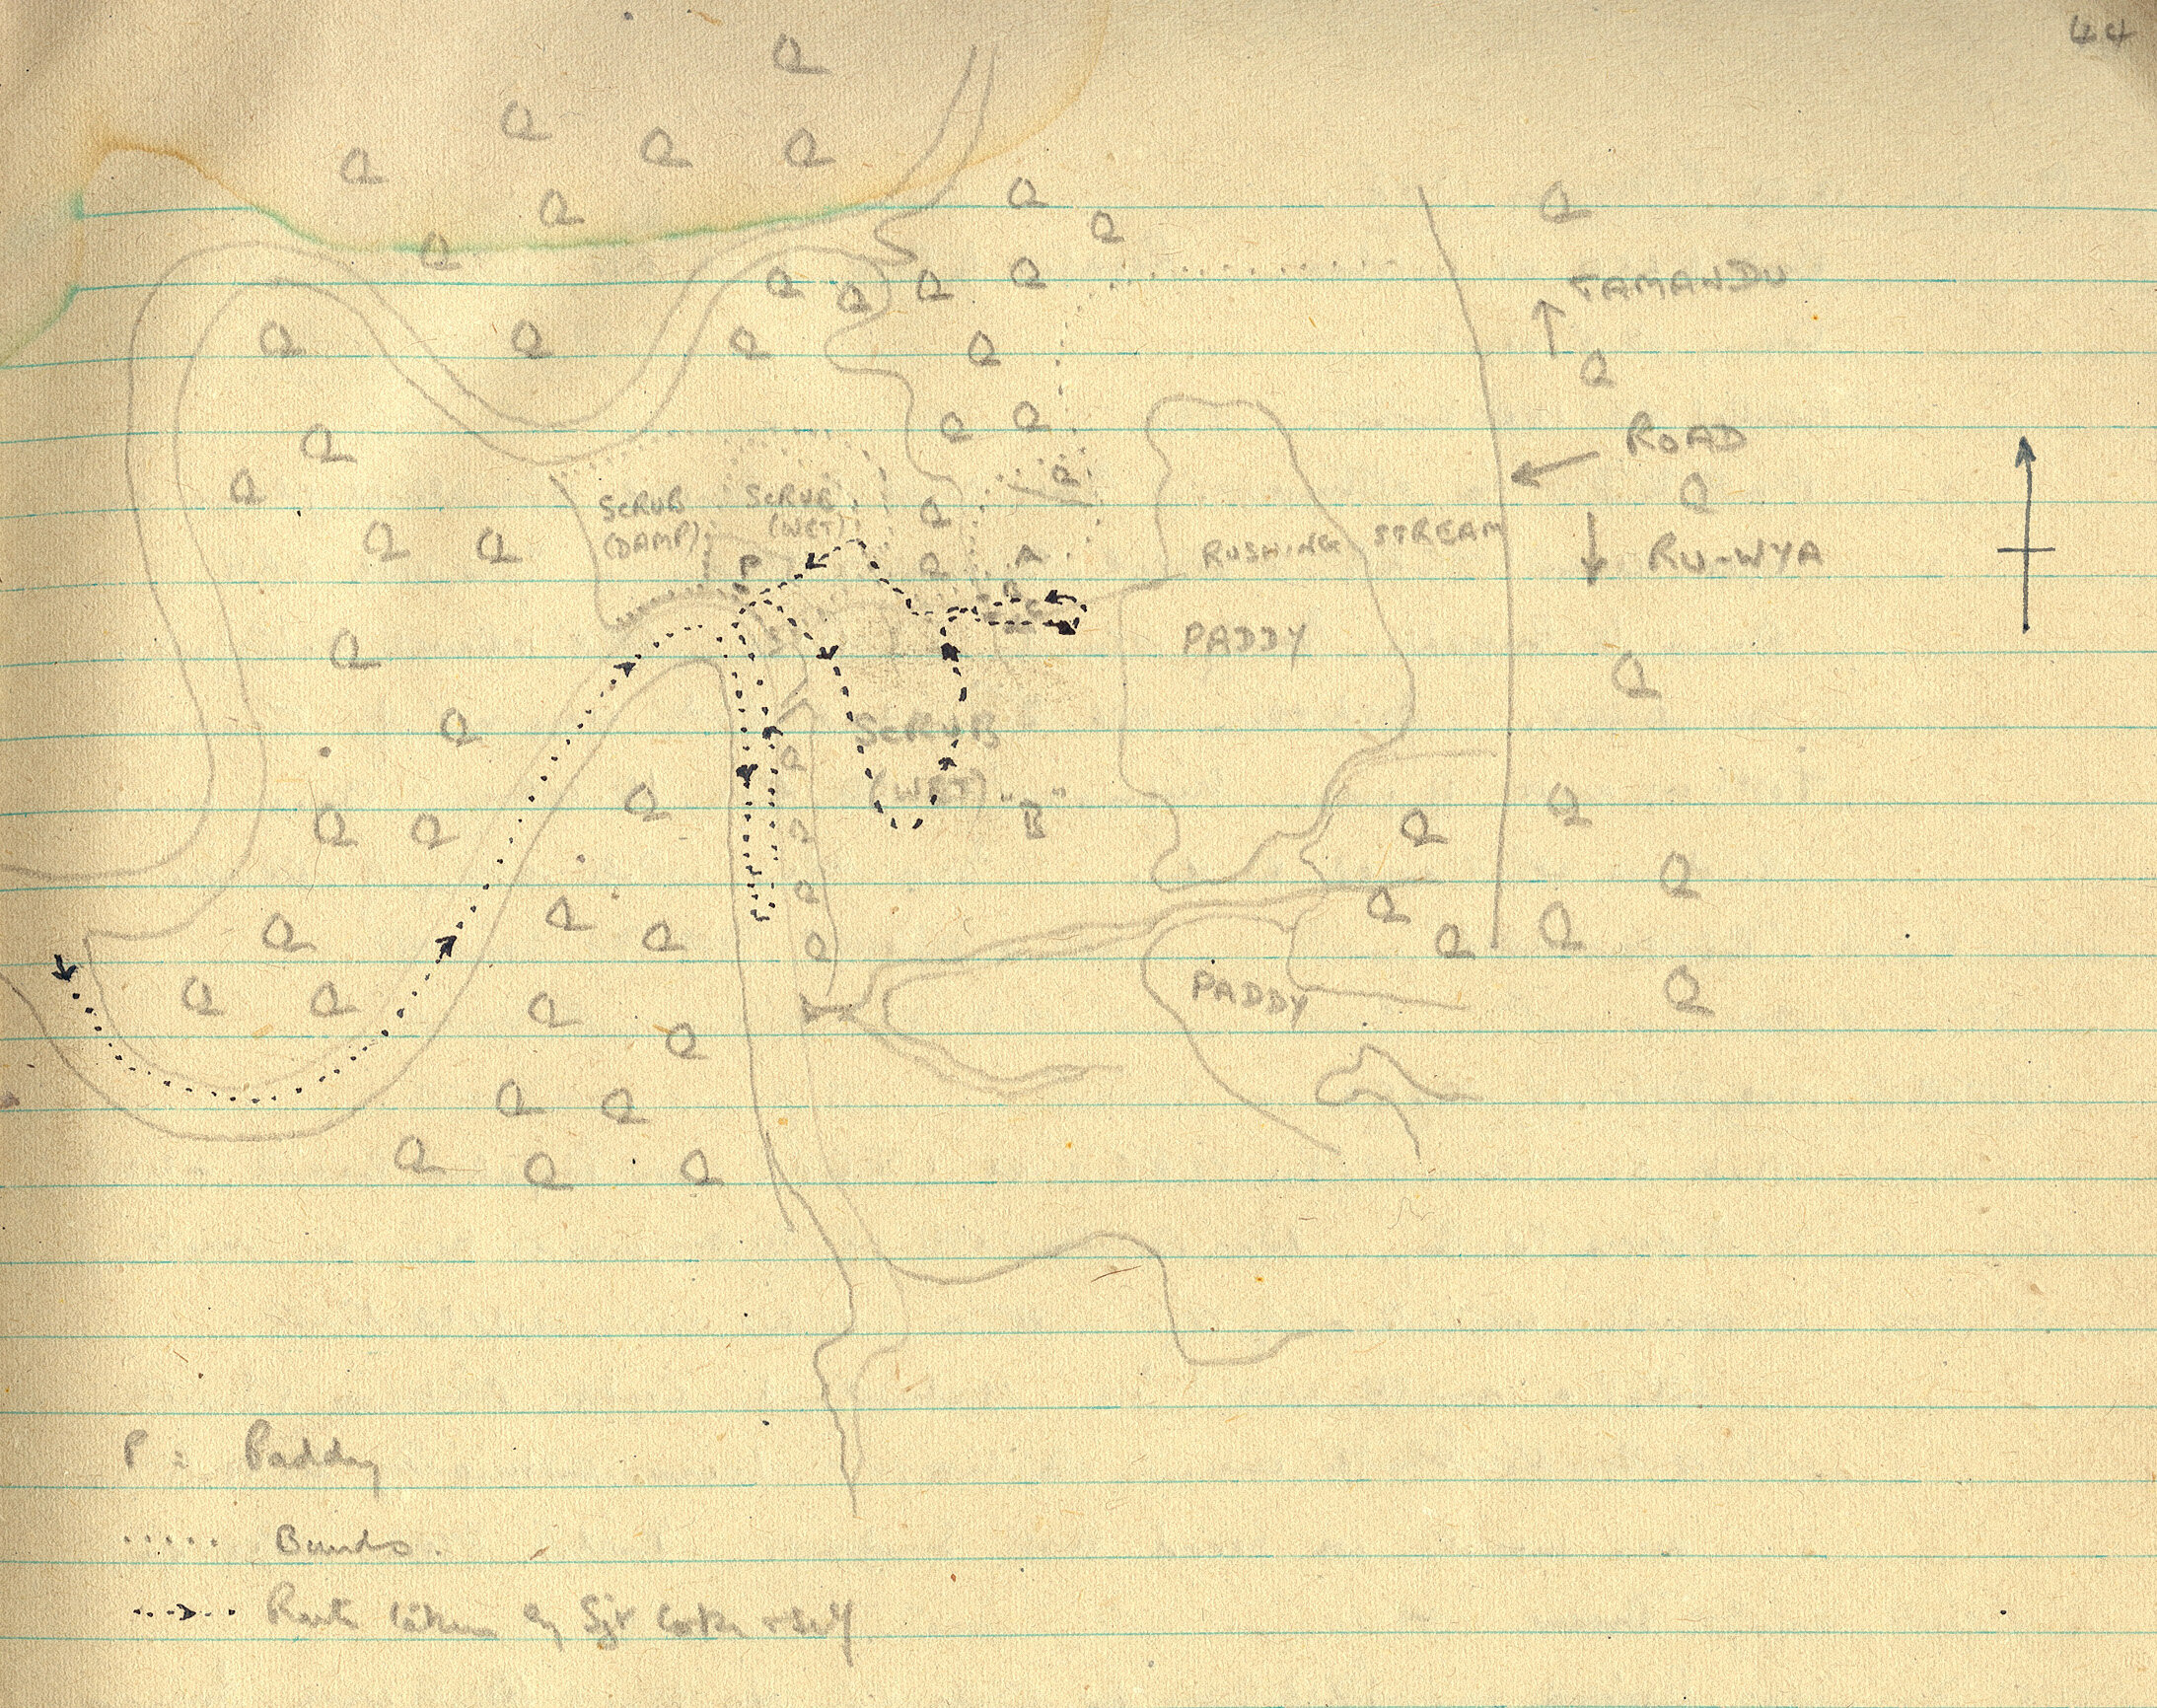 44
TAMANDU
ROAD
SCRUB (DAMP)
SCRUB (WET)
RUSHING STREAM
RU-WYA
P
A
B
C
PADDY
SCRUB (WET)
"B"
PADDY
P = Paddy
..... Bunds.
Route taken by Sjt Coker + self